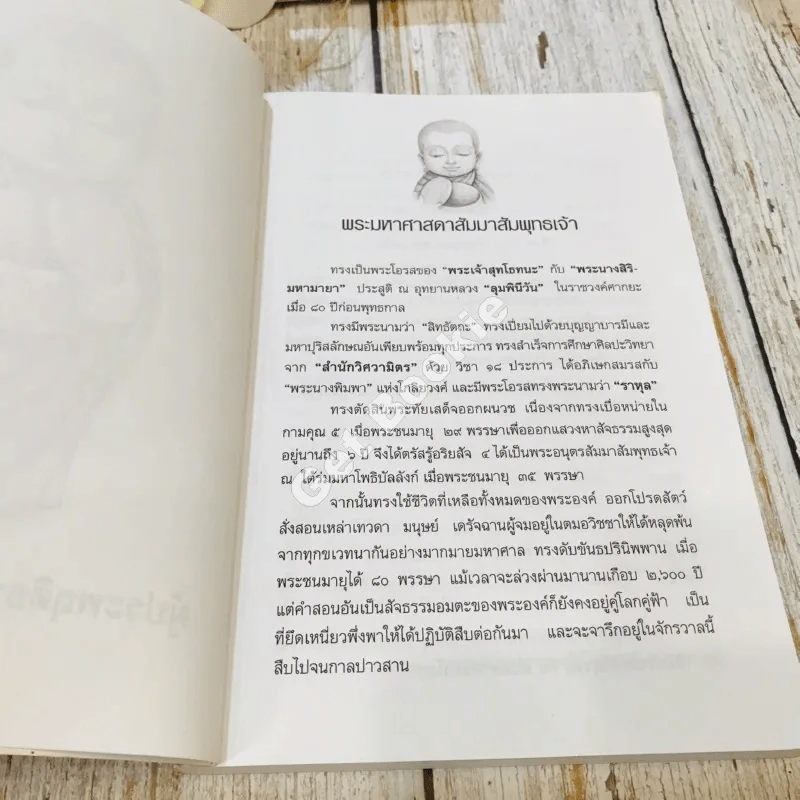 พระมหาศาสดาสัมมาสัมพุทธเจ้า
ทรงเป็นพระโอรสของ "พระเจ้าสุทโธทนะ" กับ "พระนางสิริ-
มหามายา" ประสูติ ณ อุทยานหลวง "ลุมพินีวัน" ในราชวงค์ศากยะ
เมื่อ ๘๐ ปีก่อนพุทธกาล
ทรงมีพระนามว่า "สิทธัตถะ" ทรงเปี่ยมไปด้วยบุญญาบารมีและ
มหาปุริสลักษณอันเพียบพร้อมทุกประการ ทรงสำเร็จการศึกษาศิลปะวิทยา
จาก "สำนักวิศวามิตร" ด้วย วิชา ๑๘ ประการ ได้อภิเษกสมรสกับ
"พระนางพิมพา" แห่งโกลิยวงศ์ และมีพระโอรสทรงพระนามว่า "ราหุล"
ทรงตัดสินพระทัยเสด็จออกผนวช เนื่องจากทรงเบื่อหน่ายใน
กามคุณ ๕ เมื่อพระชนมายุ ๒๙ พรรษาเพื่อออกแสวงหาสัจธรรมสูงสุด
อยู่นานถึง ๖ ปี จึงได้ตรัสรู้อริยสัจ ๔ ได้เป็นพระอนุตรสัมมาสัมพุทธเจ้า
ณ ใต้ร่มมหาโพธิบัลลังก์ เมื่อพระชนมายุ ๓๕ พรรษา
จากนั้นทรงใช้ชีวิตที่เหลือทั้งหมดของพระองค์ ออกโปรดสัตว์
สั่งสอนเหล่าเทวดา มนุษย์ เดรัจฉานผู้จมอยู่ในตมอวิชชาให้ได้หลุดพ้น
จากทุกขเวทนากันอย่างมากมายมหาศาล ทรงดับขันธปรินิพพาน เมื่อ
พระชนมายุได้ ๘๐ พรรษา แม้เวลาจะล่วงผ่านมานานเกือบ ๒,๖๐๐ ปี
แต่คำสอนอันเป็นสัจธรรมอมตะของพระองค์ก็ยังคงอยู่คู่โลกคู่ฟ้า เป็น
ที่ยึดเหนี่ยวพึ่งพาให้ได้ปฏิบัติสืบต่อกันมา และจะจารึกอยู่ในจักรวาลนี้
สืบไปจนกาลปาวสาน
Get Bookie